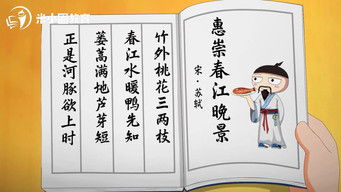 米小圈教育
惠崇春江晚景
宋·苏轼
竹外桃花三两枝
春江水暖鸭先知
蒌蒿满地芦芽短
正是河豚欲上时